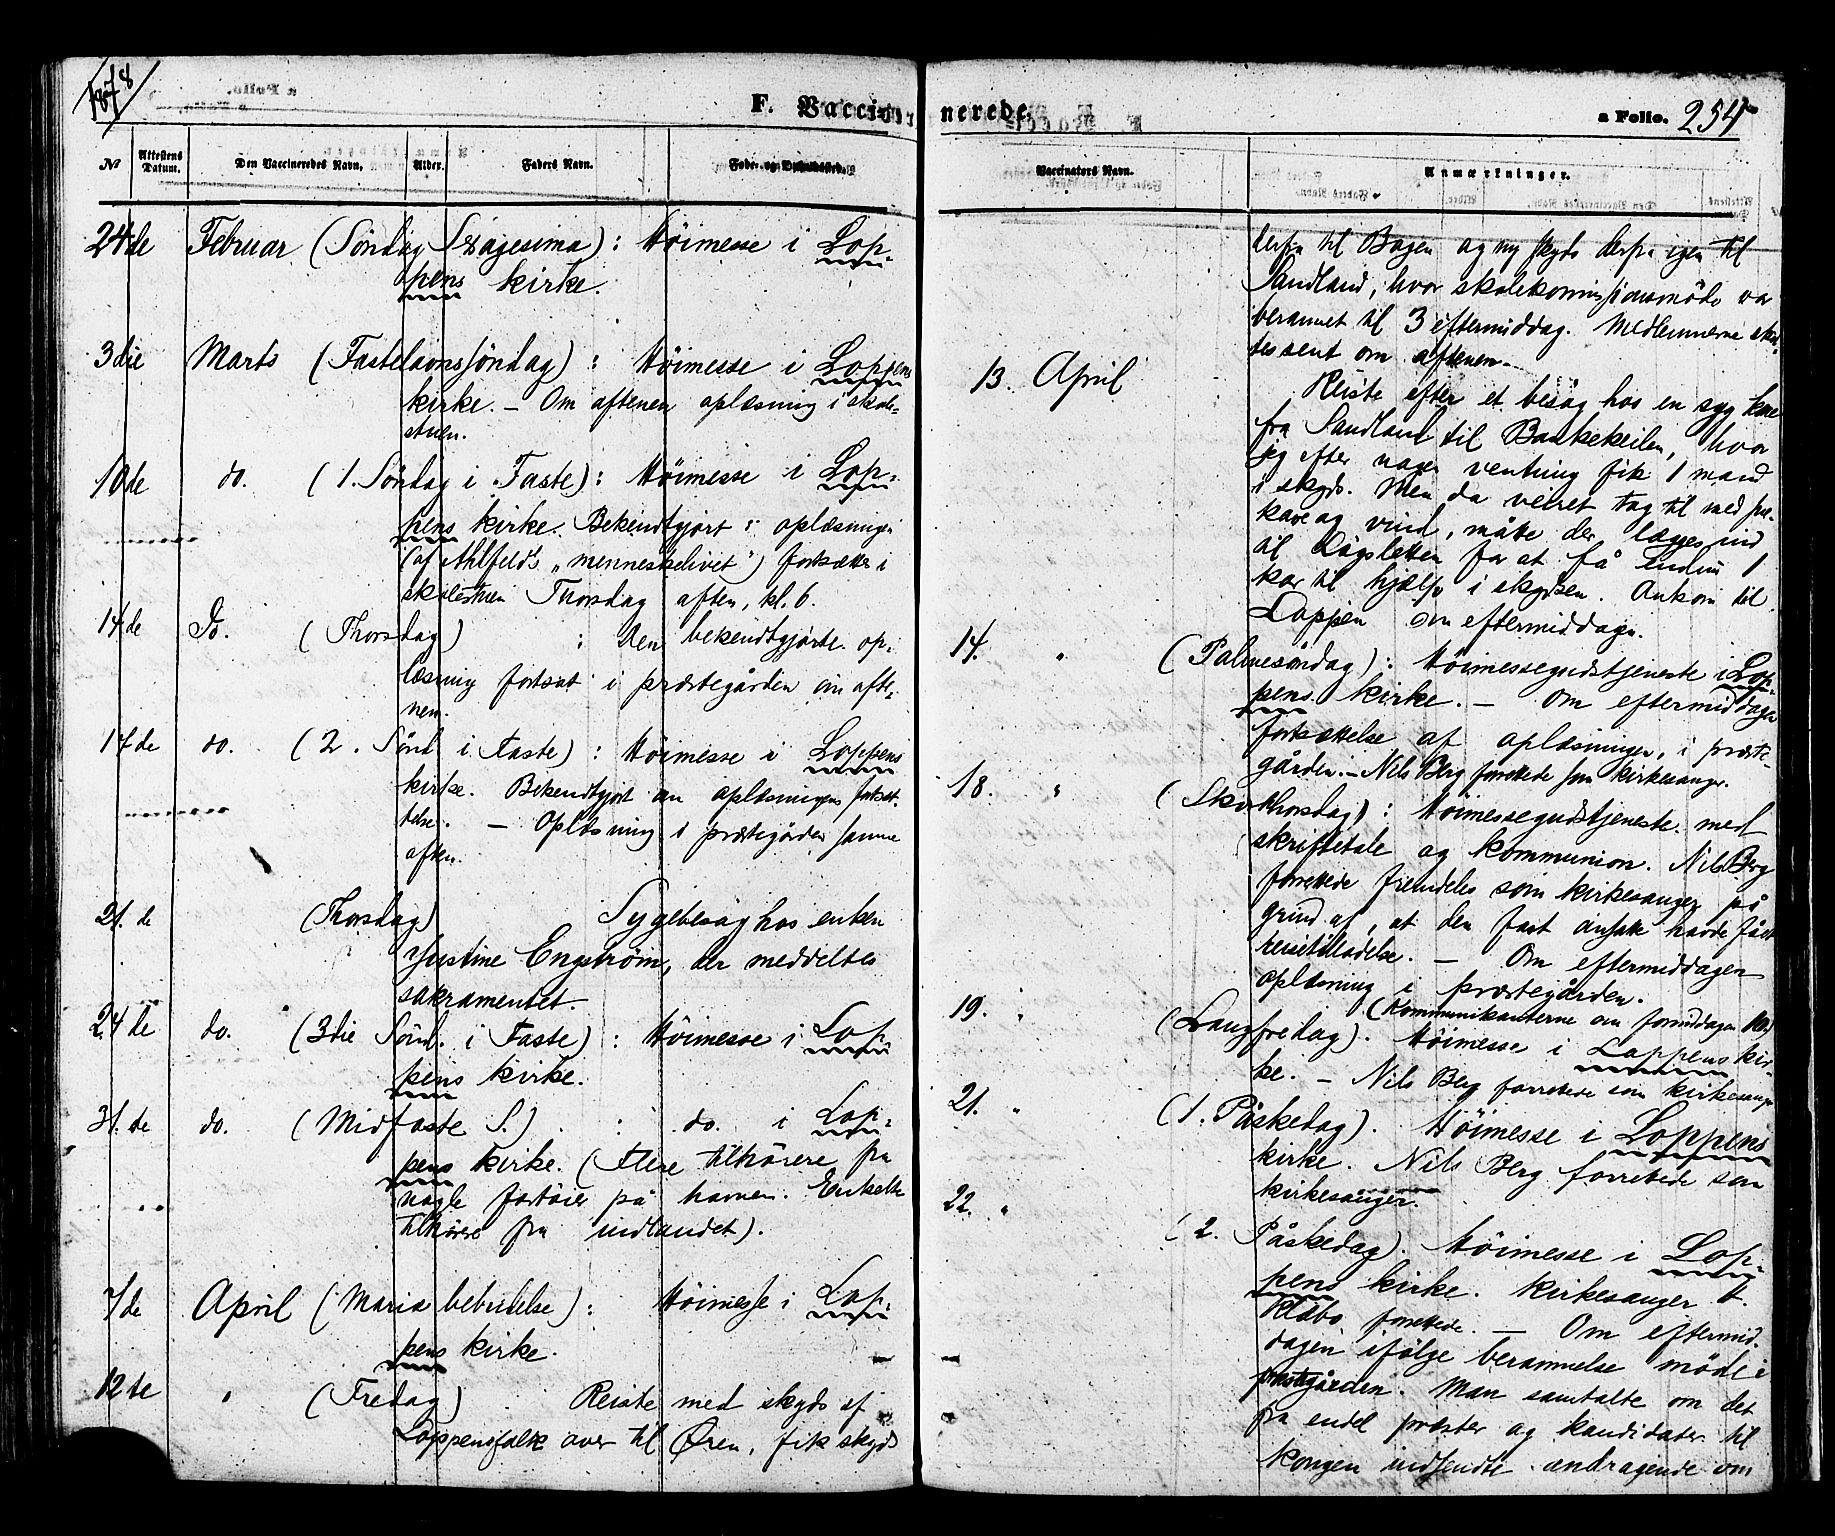 1878
F. Vaccinerede.
a Folio. 254
№ Attestens Datum. Den Vaccineredes Navn. Alder. Faders Navn. Føde- og
Vaccinators Navn. Anmærkninger.
24de Februar (Søndag Sexagesima): Høimesse i Lop-
pens kirke.
3die Marts (Fastelavnssøndag): Høimesse i Loppens
kirke. – Om aftenen oplæsning i skole-
stuen.
10de do. (1. Søndag i Faste): Høimesse i Lop-
pens kirke. Bekendtgjort: oplæsningen
(af Ahlfelds „menneskelivet") fortsættes i
skolestuen Thorsdag aften, kl. 6.
14de Do. (Thorsdag) : Den bekendtgjorte op-
læsning fortsat i præstegården om afte-
nen.
17de do. (2. Sønd. i Faste): Høimesse i Loppens
kirke. Bekendtgjort om oplæsningens fortsæt-
telse. – Oplæsning i præstegården samme
aften.
21.de (Thorsdag) Sygebesøg hos enken
Justine Engstrøm, der meddeltes
sakramentet.
24de do. (3die Sønd. i Faste): Høimesse i Lop-
pens kirke.
31.de do. (Midfaste S.) : do. i Lop-
pens kirke. (Flere tilhørere fra
nogle fartøier på havnen. Enkelte
tilhørere fra indlandet).
7de April (Maria bebudelse): Høimesse i Lop-
pens kirke.
12te " (Fredag) Reiste med skyds af
Loppensfolk over til Øren, fik skyds
derfra til Bagen og ny skyds derfra igen til
Sandland, hvor skolekommissionsmøde var
berammet til 3 eftermiddag. Medlemmerne skif-
tes sent om aftenen.
13. April Reiste efter et besøg hos en syg kone
fra Sandland til Bankekeilen, hvor
jeg efter nogen venting fik 1 mand
i skyds. Men da veiret tog til med sne-
kave og vind, måtte der lægges ind
til Langsletten for at få endnu 1
kar til hjælp i skydsen. Ankom til
Loppen om eftermiddagen.
14. " (Palmesøndag): Høimessegudstjeneste i Lop-
pens kirke. – Om eftermiddagen
fortsættelse af oplæsningen, i præste-
gården. – Nils Berg forrettede som kirkesanger.
18. " (Skjærthorsdag): Høimessegudstjeneste med
skriftetale og kommunion. Nils Berg
forrettede fremdeles som kirkesanger på
grund af, at den fast ansatte havde fået
reisetilladelse. – Om eftermiddagen
oplæsning i præstegården.
(Kommunikanterne om formiddagen
19. " (Langfredag). Høimesse i Loppens kir-
ke. – Nils Berg forrettede som kirkesanger
21. " (1. Påskedag). Høimesse i Loppens
kirke. Nils Berg forrettede som
kirkesanger.
22. " (2. Påskedag). Høimesse i Lop-
pens kirke. Kirkesanger
forrettede. – Om eftermid-
dagen ifølge berammelse møde i
præstegården. Man samtalte om det
fra endel præster og kandidater til
kongen indsendte andragende om